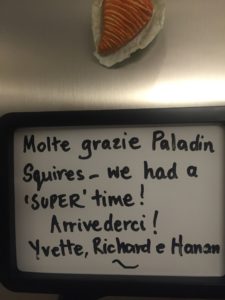 Molte grazie Paladin
Squires - we had a
'SUPER' time!
Arrivederci!
Yvette, Richard e Hanan